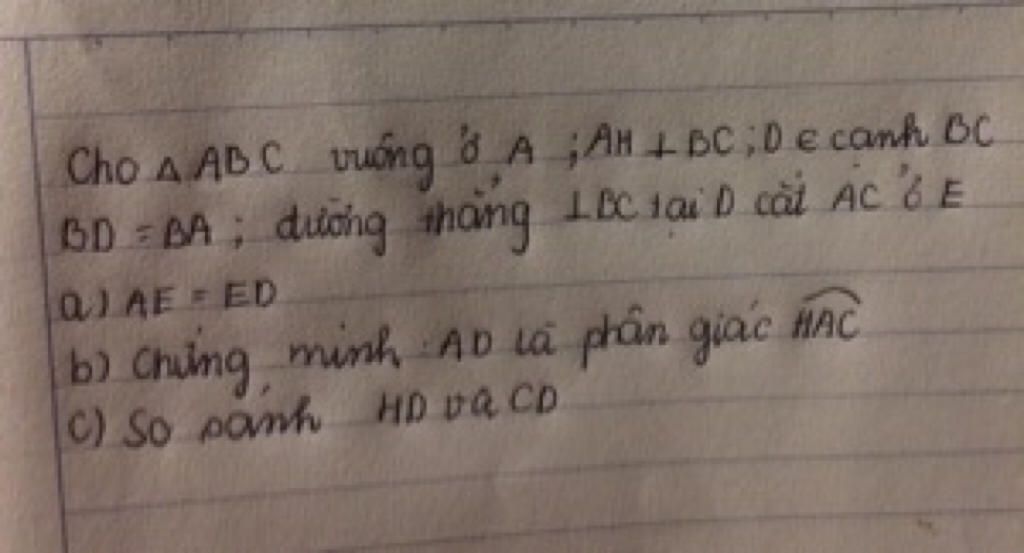 Cho △ ABC vuông ở A ; AH ⊥ BC ; D ∈ cạnh BC
BD = BA ; đường thẳng ⊥ BC tại D cắt AC ở E
a) AE = ED
b) Chứng minh AD là phân giác HAC
c) So sánh HD và CD